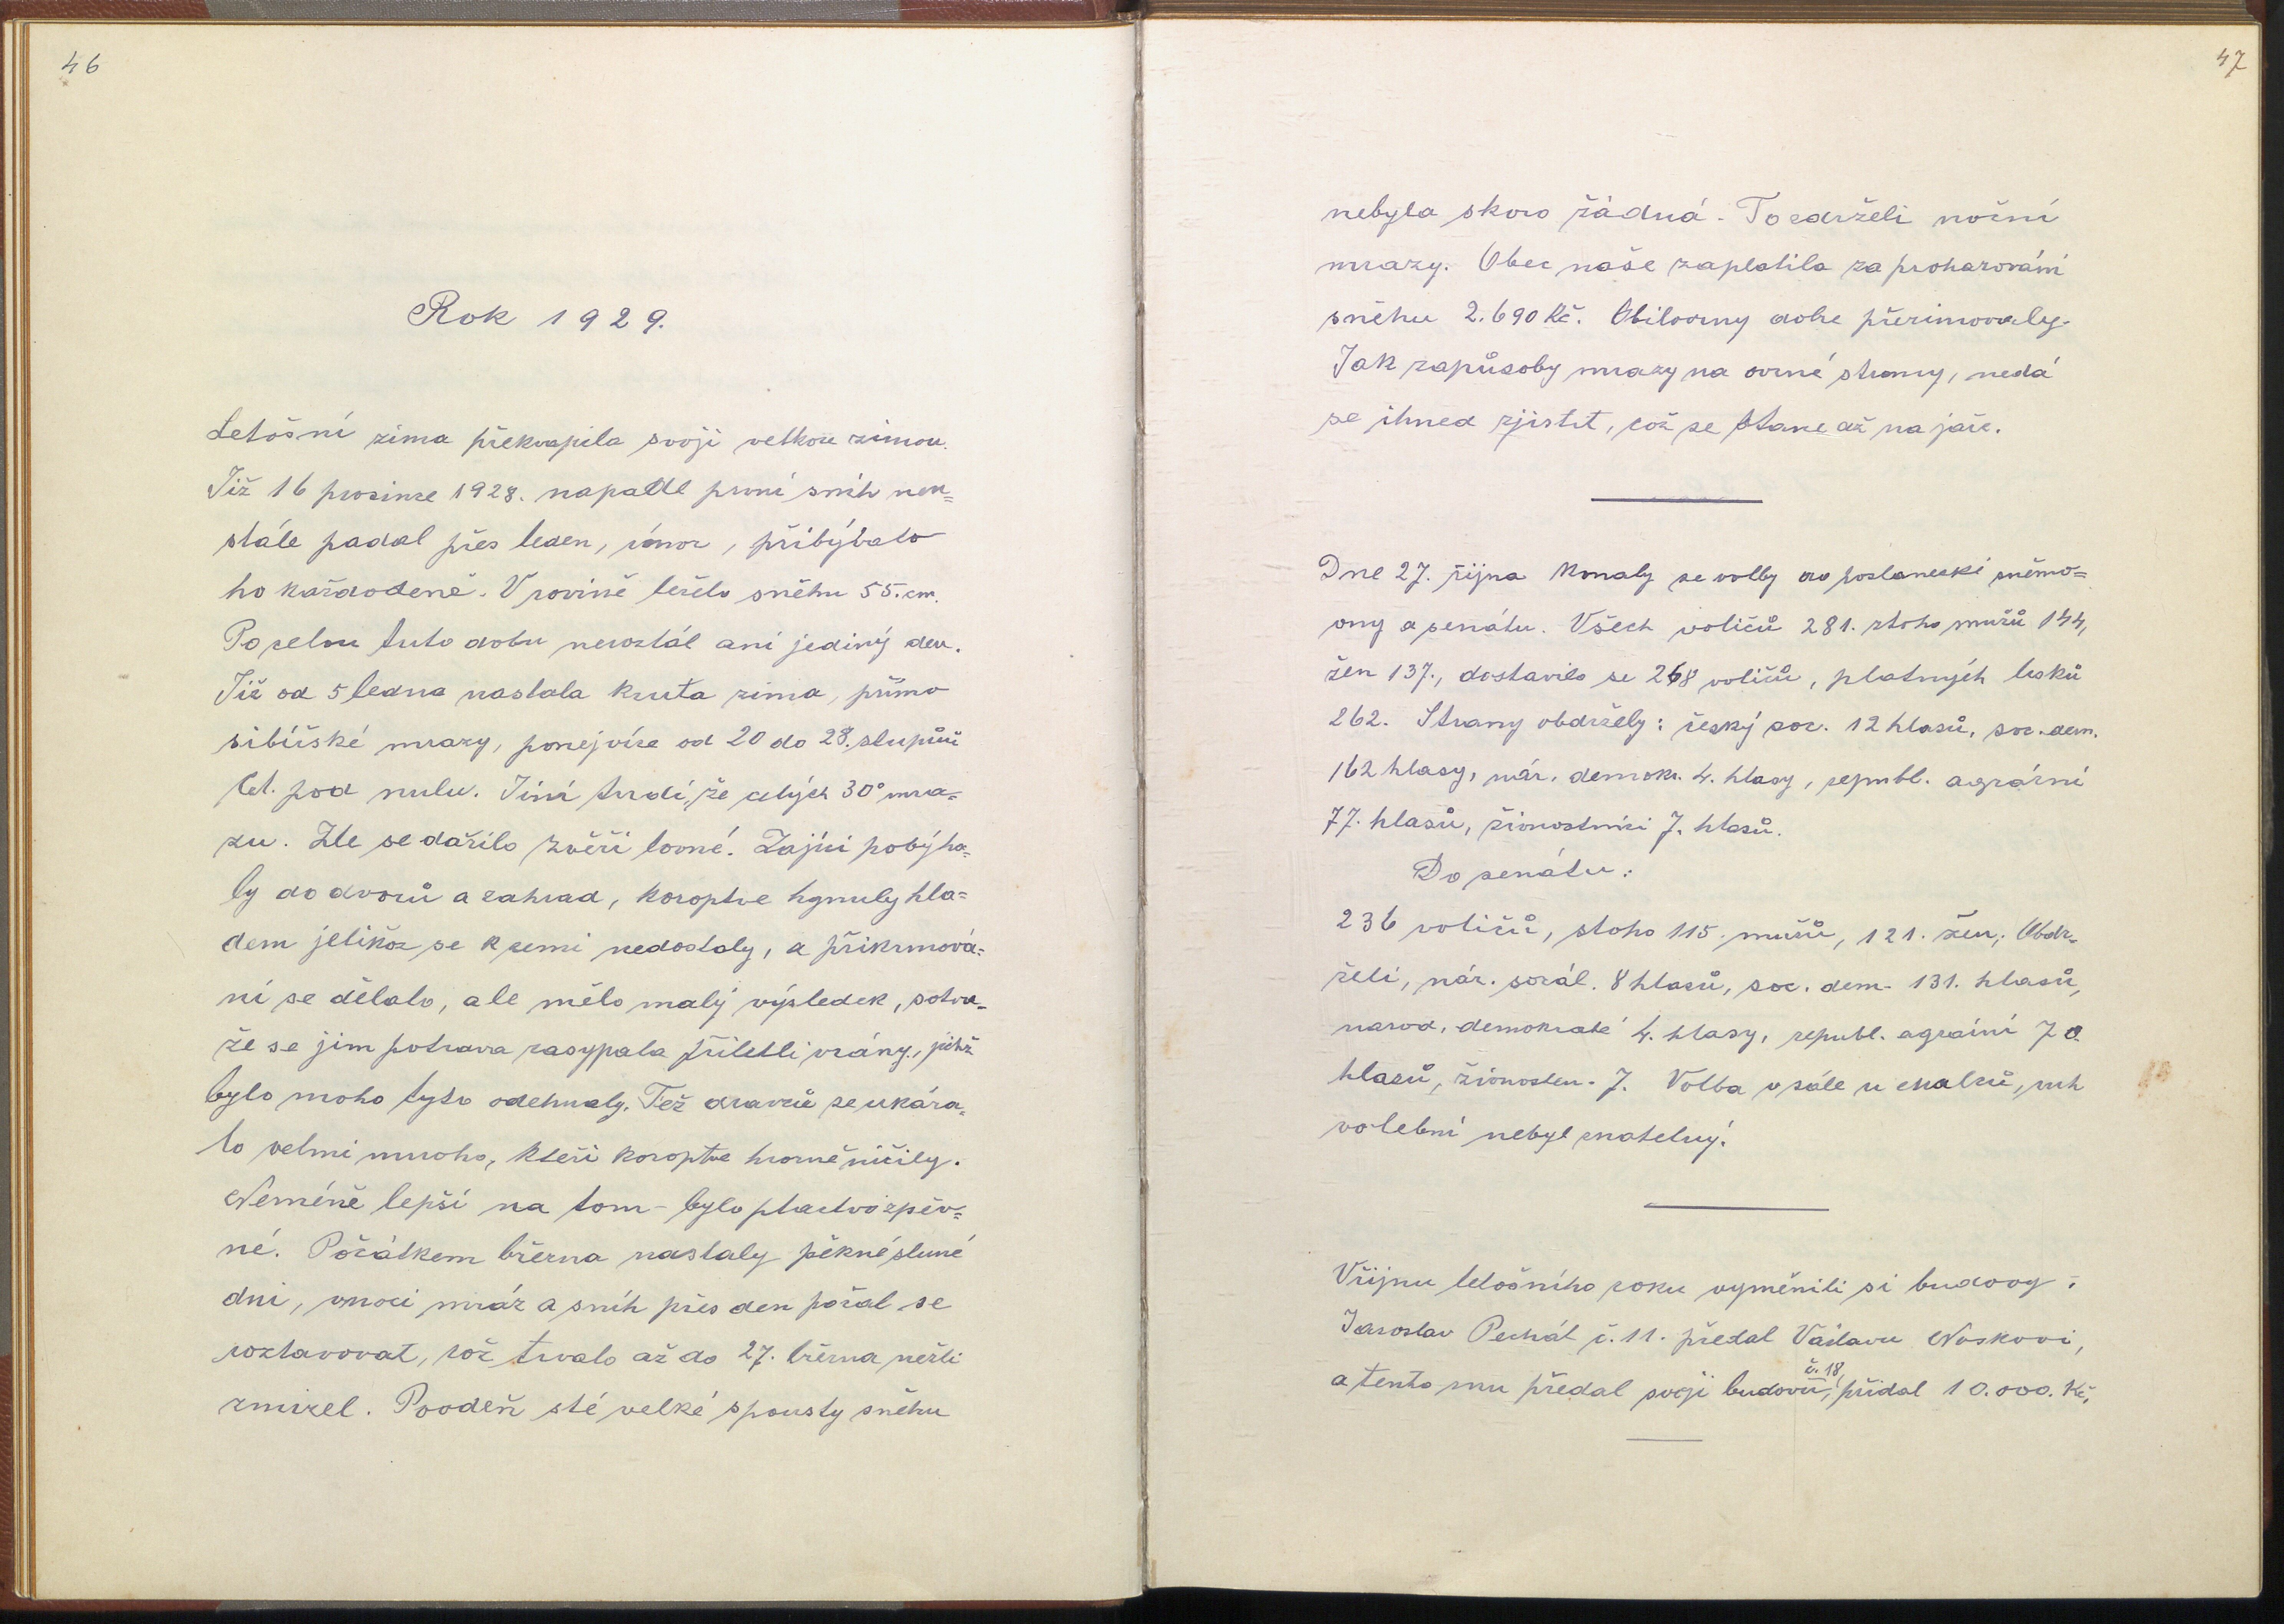 46
Rok 1929.
Letošní zima překvapila svoji velkou zimou.
Již 16 prosince 1928. napadl první sníh neu=
stále padal přes leden, únor, přibývalo
ho každodeně. V rovině leželo sněhu 55. cm.
Po celou tuto dobu neroztál ani jediný den.
Již od 5 ledna nastala kruta zima, přímo
sibiřské mrazy, ponejvíce od 20 do 28. stupňů
Cel. pod nulu. Jiní tvrdí, že celých 30° mra=
zu. Zle se dařilo zvěři lovné. Zajíci pobýha=
ly do dvorů a zahrad, koroptve hynuly hla=
dem jelikož se k zemi nedostaly, a přikrmová=
ní se dělalo, ale mělo malý výsledek, sotva=
že se jim potrava zasypala přiletli vrány, jichž
bylo moho tyto odehnaly. Též dravců se ukáza=
lo velmi mnoho, kteři koroptve hromě ničily.
Neméně lepší na tom - bylo ptactvo zpěv=
né. Počátkem března nastaly pěkné sluné
dni, vnoci mráz a sníh přes den počal se
roztavovat, což trvalo až do 27. března nežli
zmizel. Povodeň sté velké spousty sněhu
47
nebyla skoro žádná. To zdrželi noční
mrazy. Obec naše zaplatila za proházováni
sněhu 2.690 Kč. Obiloviny dobe přezimovaly.
Jak zapůsoby mrazy na ovcné stromy, nedá
se ihned zjistit, což se stane až na jaře.
Dne 27. října konaly se volby do poslanecki sněmo=
vny a senátu. Všech voličů 281. ztoho mužů 144,
žen 137., dostavilo se 268 voličů, platných lísků
262. Strany obdržely: český soc. 12 hlasů, soc. dem.
162 hlasy, nár. demokr. 4. hlasy, republ. agrární
77. hlasů, živnostníci 7. hlasů.
Do senátu:
236 voličů, stoho 115. mužů, 121. žen; Obdr=
želi, nár. sociál. 8 hlasů, soc. dem - 131. hlasů,
narod. demokraté 4. hlasy, republ. agrární 70.
hlasů, živnosten. 7. Volba v sále u , ruh
volební nebyl znatelný.
Vříjnu letošního roku vyměnili si budovy.
Jaroslav Pechát č. 11. předal Václavu Noskovi,
č. 18,
a tento mu předal svoji budovu, přidal 10.000. Kč,